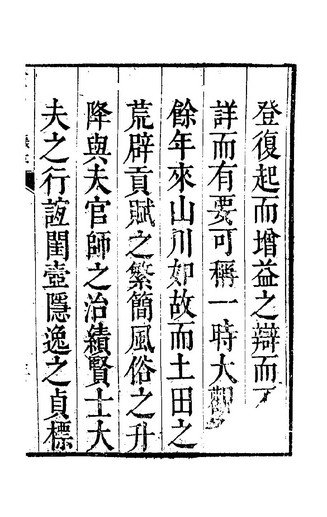 登復起而增益之辯而
詳而有要可稱一時大觀
餘年來山川如故而土田之
荒辟貢賦之繁簡風俗之升
降與夫官師之治績賢士大
夫之行誼閨壼隱逸之貞標